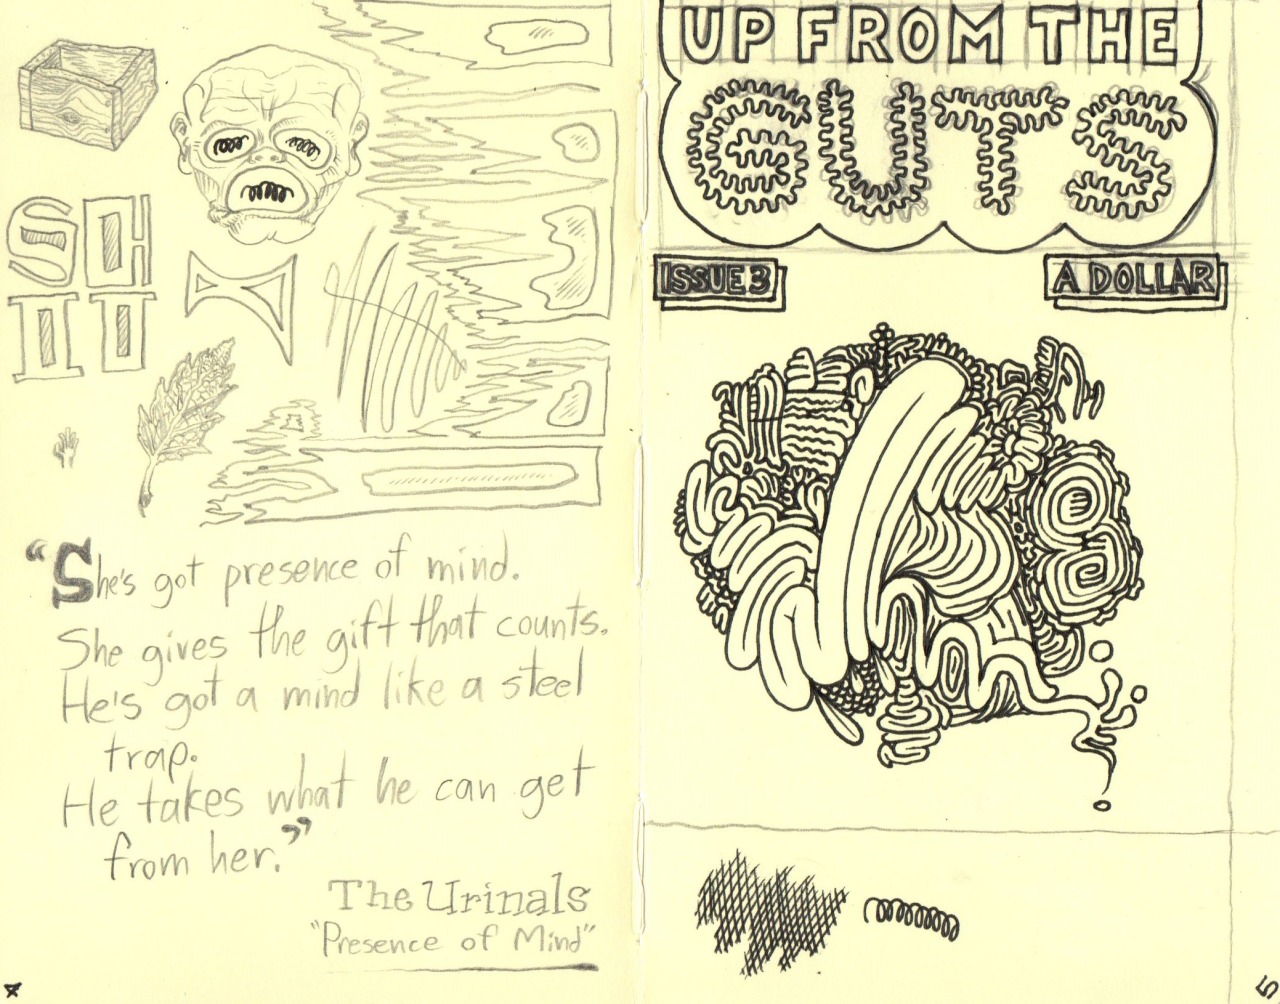 SC
II U
"She's got presence of mind.
She gives the gift that counts.
He's got a mind like a steel
trap.
He takes what he can get
from her."
The Urinals
"Presence of Mind"
4
UP FROM THE
GUTS
ISSUE 3
A DOLLAR
5